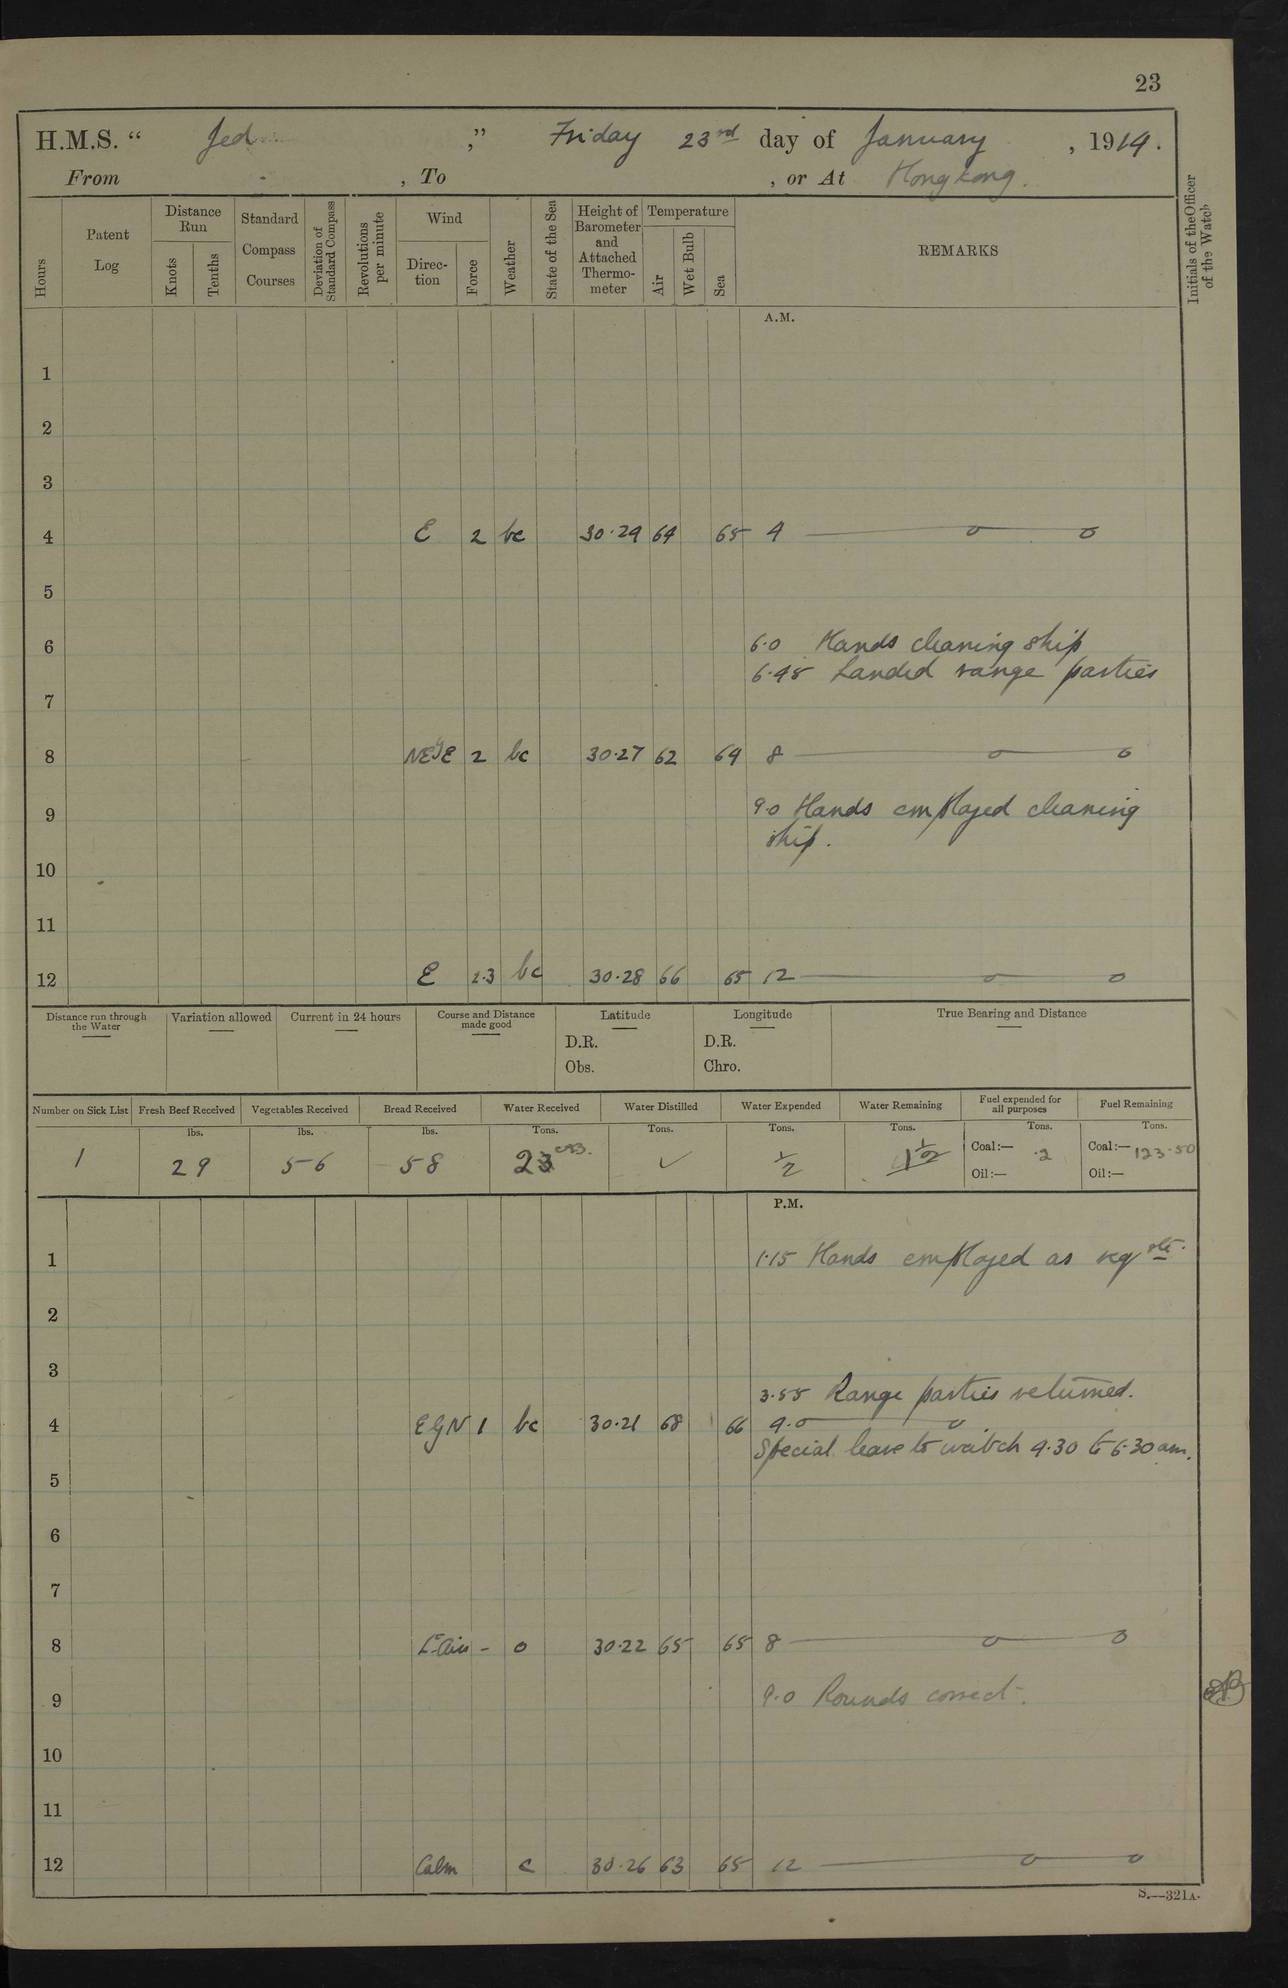 23
H.M.S. “ Jed ,” Friday 23rd day of January , 1914.
From , To , or At Hong Kong.
Hours
Patent Log
Distance Run
Knots
Tenths
Standard Compass Courses
Deviation of Standard Compass
Revolutions per minute
Wind
Direction
Force
Weather
State of the Sea
Height of Barometer and Attached Thermometer
Temperature
Air
Wet Bulb
Sea
REMARKS
Initials of the Officer of the Watch
A.M.
1
2
3
4 E 2 bc 30.29 64 65 4
5
6 6.0 Hands cleaning ship
6.48 Landed range parties
7
8 NEyE 2 bc 30.27 62 64 8
9 9.0 Hands employed cleaning
ship.
10
11
12 E 2.3 bc 30.28 66 65 12
Distance run through the Water
Variation allowed
Current in 24 hours
Course and Distance made good
Latitude
D.R.
Obs.
Longitude
D.R.
Chro.
True Bearing and Distance
Number on Sick List
Fresh Beef Received
Vegetables Received
Bread Received
Water Received
Water Distilled
Water Expended
Water Remaining
Fuel expended for all purposes
Fuel Remaining
lbs. lbs. lbs. Tons. Tons. Tons. Tons. Tons. Tons.
1 29 56 58 23 ✓ ½ 1½
Coal:— .2
Oil:—
Coal:— 123.50
Oil:—
P.M.
1 1.15 Hands employed as reqte.
2
3
3.55 Range parties returned.
4 EyN 1 bc 30.21 68 66 4.0
Special leave to watch 4.30 to 6.30 am.
5
6
7
8 Lt Airs - o 30.22 65 65 8
9 9.0 Rounds correct.
10
11
12 Calm c 30.26 63 65 12
S.—321A.